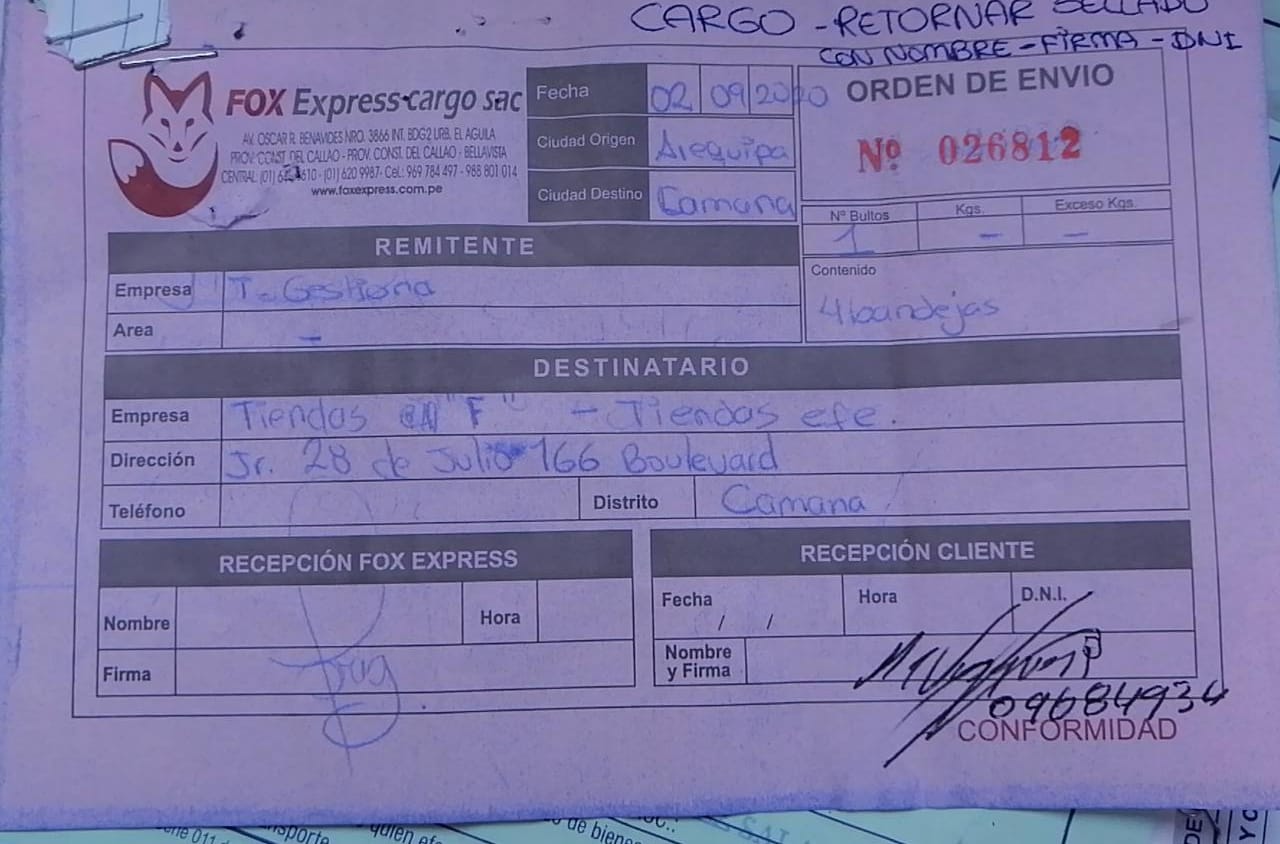 CARGO - RETORNAR SELLADO
CON NOMBRE - FIRMA - DNI
FOX Express cargo sac
AV. OSCAR R. BENAVIDES NRO. 3866 INT. BDG2 URB. EL AGUILA
PROV. CONST. DEL CALLAO - PROV. CONST. DEL CALLAO - BELLAVISTA
CENTRAL: (01) 610 - (01) 620 9987 - Cel.: 969 784 497 - 988 801 014
www.foxexpress.com.pe
Fecha 02 09 2020
Ciudad Origen Arequipa
Ciudad Destino Camana
ORDEN DE ENVIO
Nº 026812
Nº Bultos Kgs. Exceso Kgs.
1 - -
Contenido
4 bandejas
REMITENTE
Empresa T-Gestiona
Area -
DESTINATARIO
Empresa Tiendas "F" - Tiendas efe.
Dirección Jr. 28 de Julio 166 Boulevard
Teléfono Distrito Camana
RECEPCIÓN FOX EXPRESS
Nombre Hora
Firma
RECEPCIÓN CLIENTE
Fecha / / Hora D.N.I.
Nombre
y Firma
09684934
CONFORMIDAD
quien
de